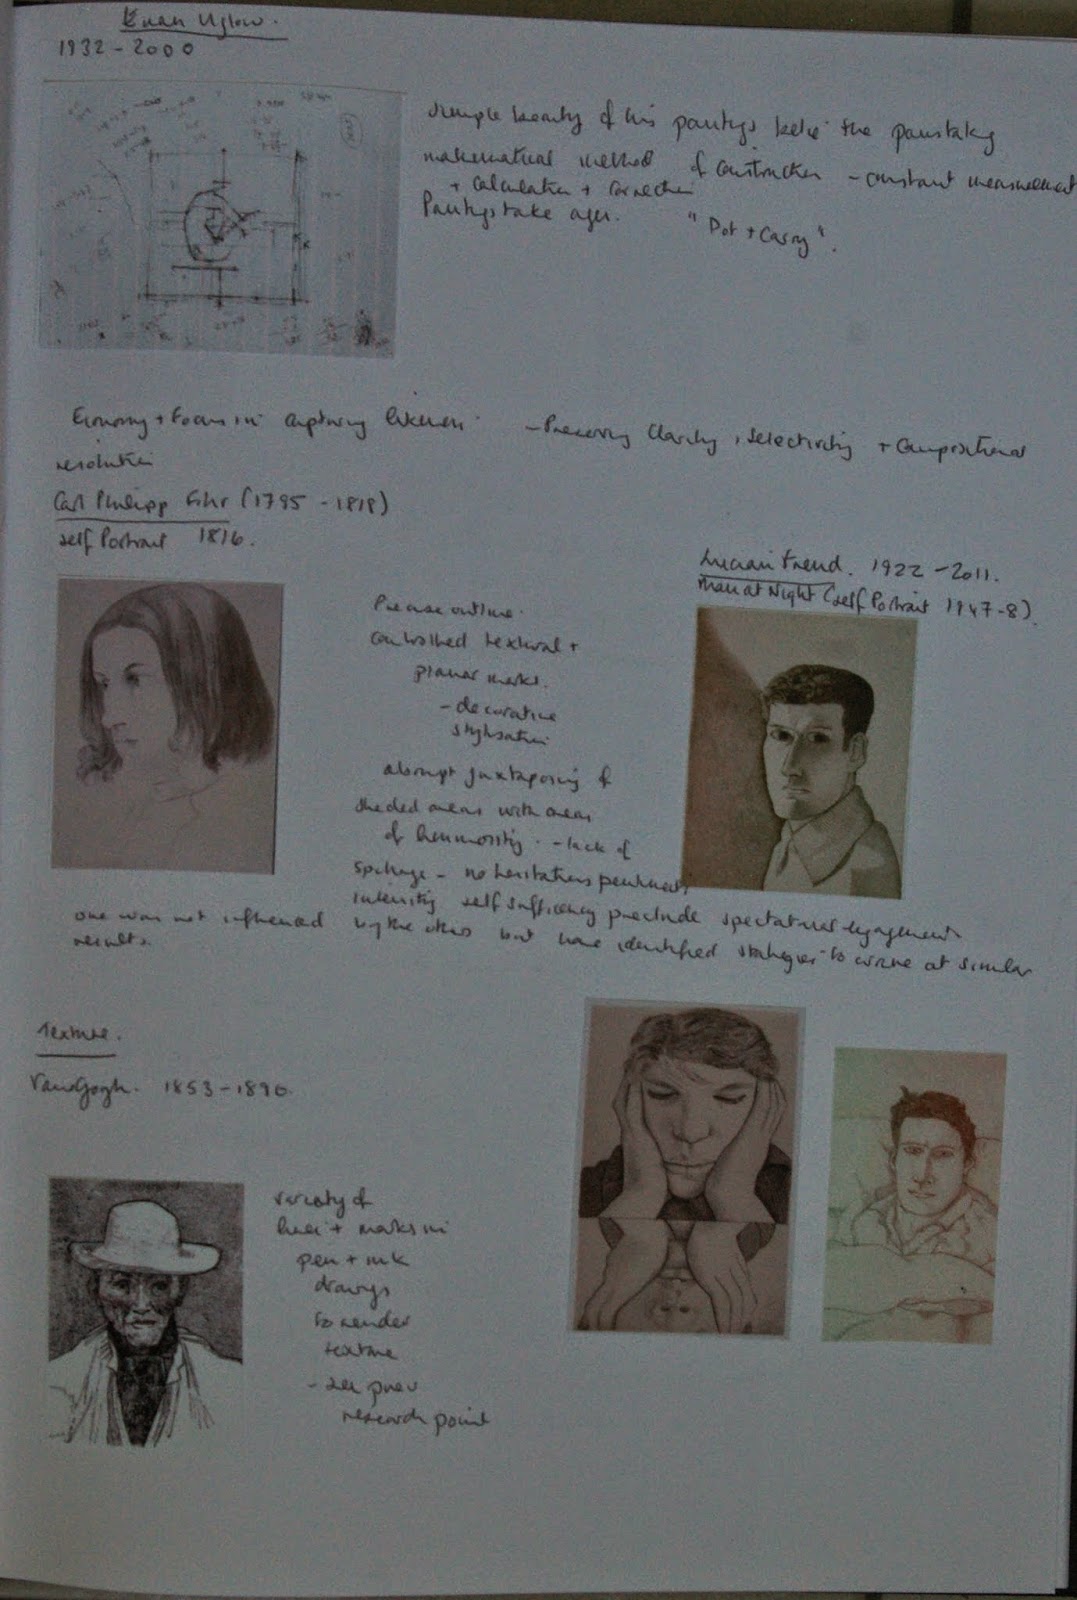 Euan Uglow.
1932 - 2000
simple beauty of his paintings belie the painstaking
mathematical method of construction - constant measurement
+ calculation + correction
Paintings take ages. "Dot + Carry".
Economy + Focus in capturing likeness - Preserving Clarity, Selectivity + Compositional
resolution
Carl Philipp Fohr (1795 - 1818)
Self Portrait 1816.
Lucian Freud. 1922 - 2011.
Man at Night (Self Portrait 1947-8).
Precise outline.
controlled textural +
planar marks.
- decorative
stylisation
abrupt juxtaposing of
shaded areas with areas
of luminosity. - lack of
- no hesitations pentiments
intensity self sufficiency preclude spectators engagement
one was not influenced by the other but have identified strategies to arrive at similar
results.
Texture.
Van Gogh. 1853 - 1890.
variety of
lines + marks in
pen + ink
drawings
to render
texture
- see prev
research point